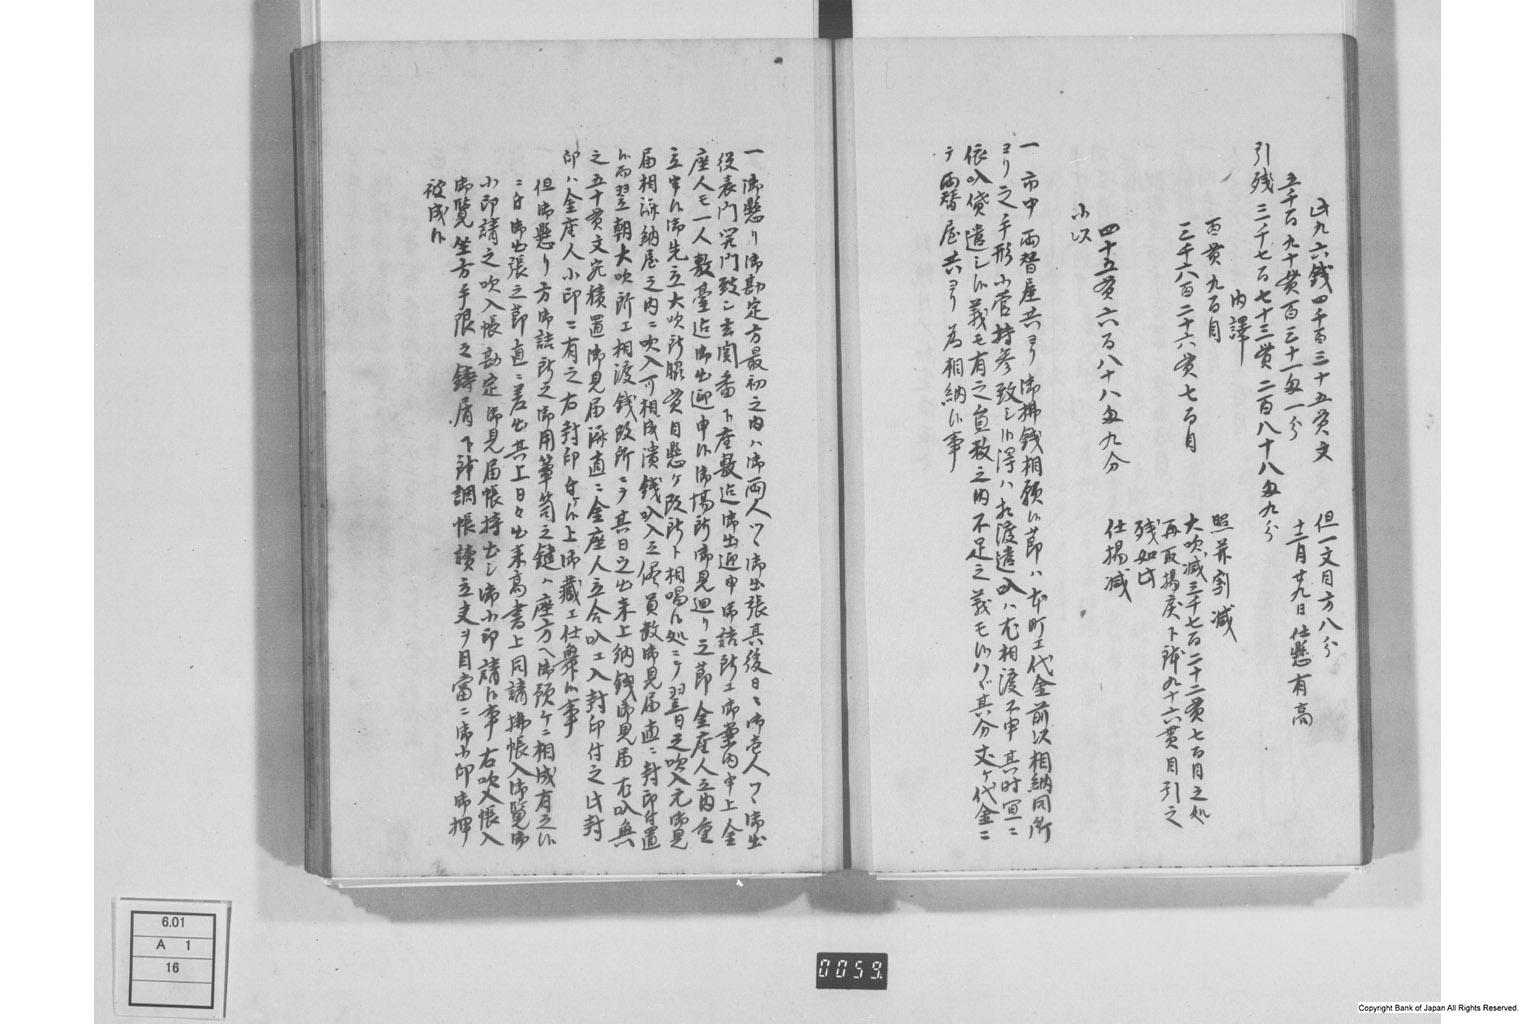 此九六銭四千百三十五貫文
但一文目方八分
五千百九十貫百三十一匁一分
十二月廿九日仕懸有高
引残三千七百七十三貫二百八十八匁九分
内訳
百貫九百目
照並割減
三千六百二十六貫七百目
大吹減三千七百二十二貫七百目之処
再取揚戻下銖九十六貫目引之
残如此
四十五貫六百八十八匁九分
仕揚減
小以
一 市中両替屋共ヨリ御払銭相願候節ハ本町エ代金前以相納同所
ヨリ之手形小菅持参致シ候得ハ相渡遣
ハ尤相渡不申其時宜ニ
依入貸遣シ候義モ有之員数之内不足之義モ候ハヾ其分丈ケ代金ニ
テ両替屋共ヨリ為相納候事
一 御懸リ御勘定方最初之内ハ御両人ツヽ御出張其後日々御壱人ツヽ御出
役表門開門致シ玄関番下座敷迄御出迎申御詰所エ御案内申上金
座人モ一人敷台迄御出迎申候御場所御見廻リ之節金座人立内重
立家候御先立大吹所
貫目懸ケ改所ト相唱候処ニテ翌日之吹入元御見
届相済納屋之内ニ吹入可相成潰銭
入立
員数御見届直ニ封印付置
候而翌朝大吹所エ相渡銭改所ニテ其日之出来上納銭御見届尤
無
之五十貫文宛積置御見届済直ニ金座人立合
エ入封印付之此封
印ハ金座人小印ニ有之右封印付候上御蔵エ仕舞候事
但御懸リ方御詰所之御用箪笥之鍵ハ座方ヘ御預ケニ相成有之候
ニ付御出張之節直ニ差出其上日々出来高書上同請払帳入御覧御
小印請之吹入帳勘定御見届帳持出シ御小印請候事右吹入帳入
御覧座方手限之鋳屑下銖調帳読立丈ヲ目当ニ御小印御押
被成候
6.01
A 1
16
0059.
Copyright Bank of Japan All Rights Reserved.